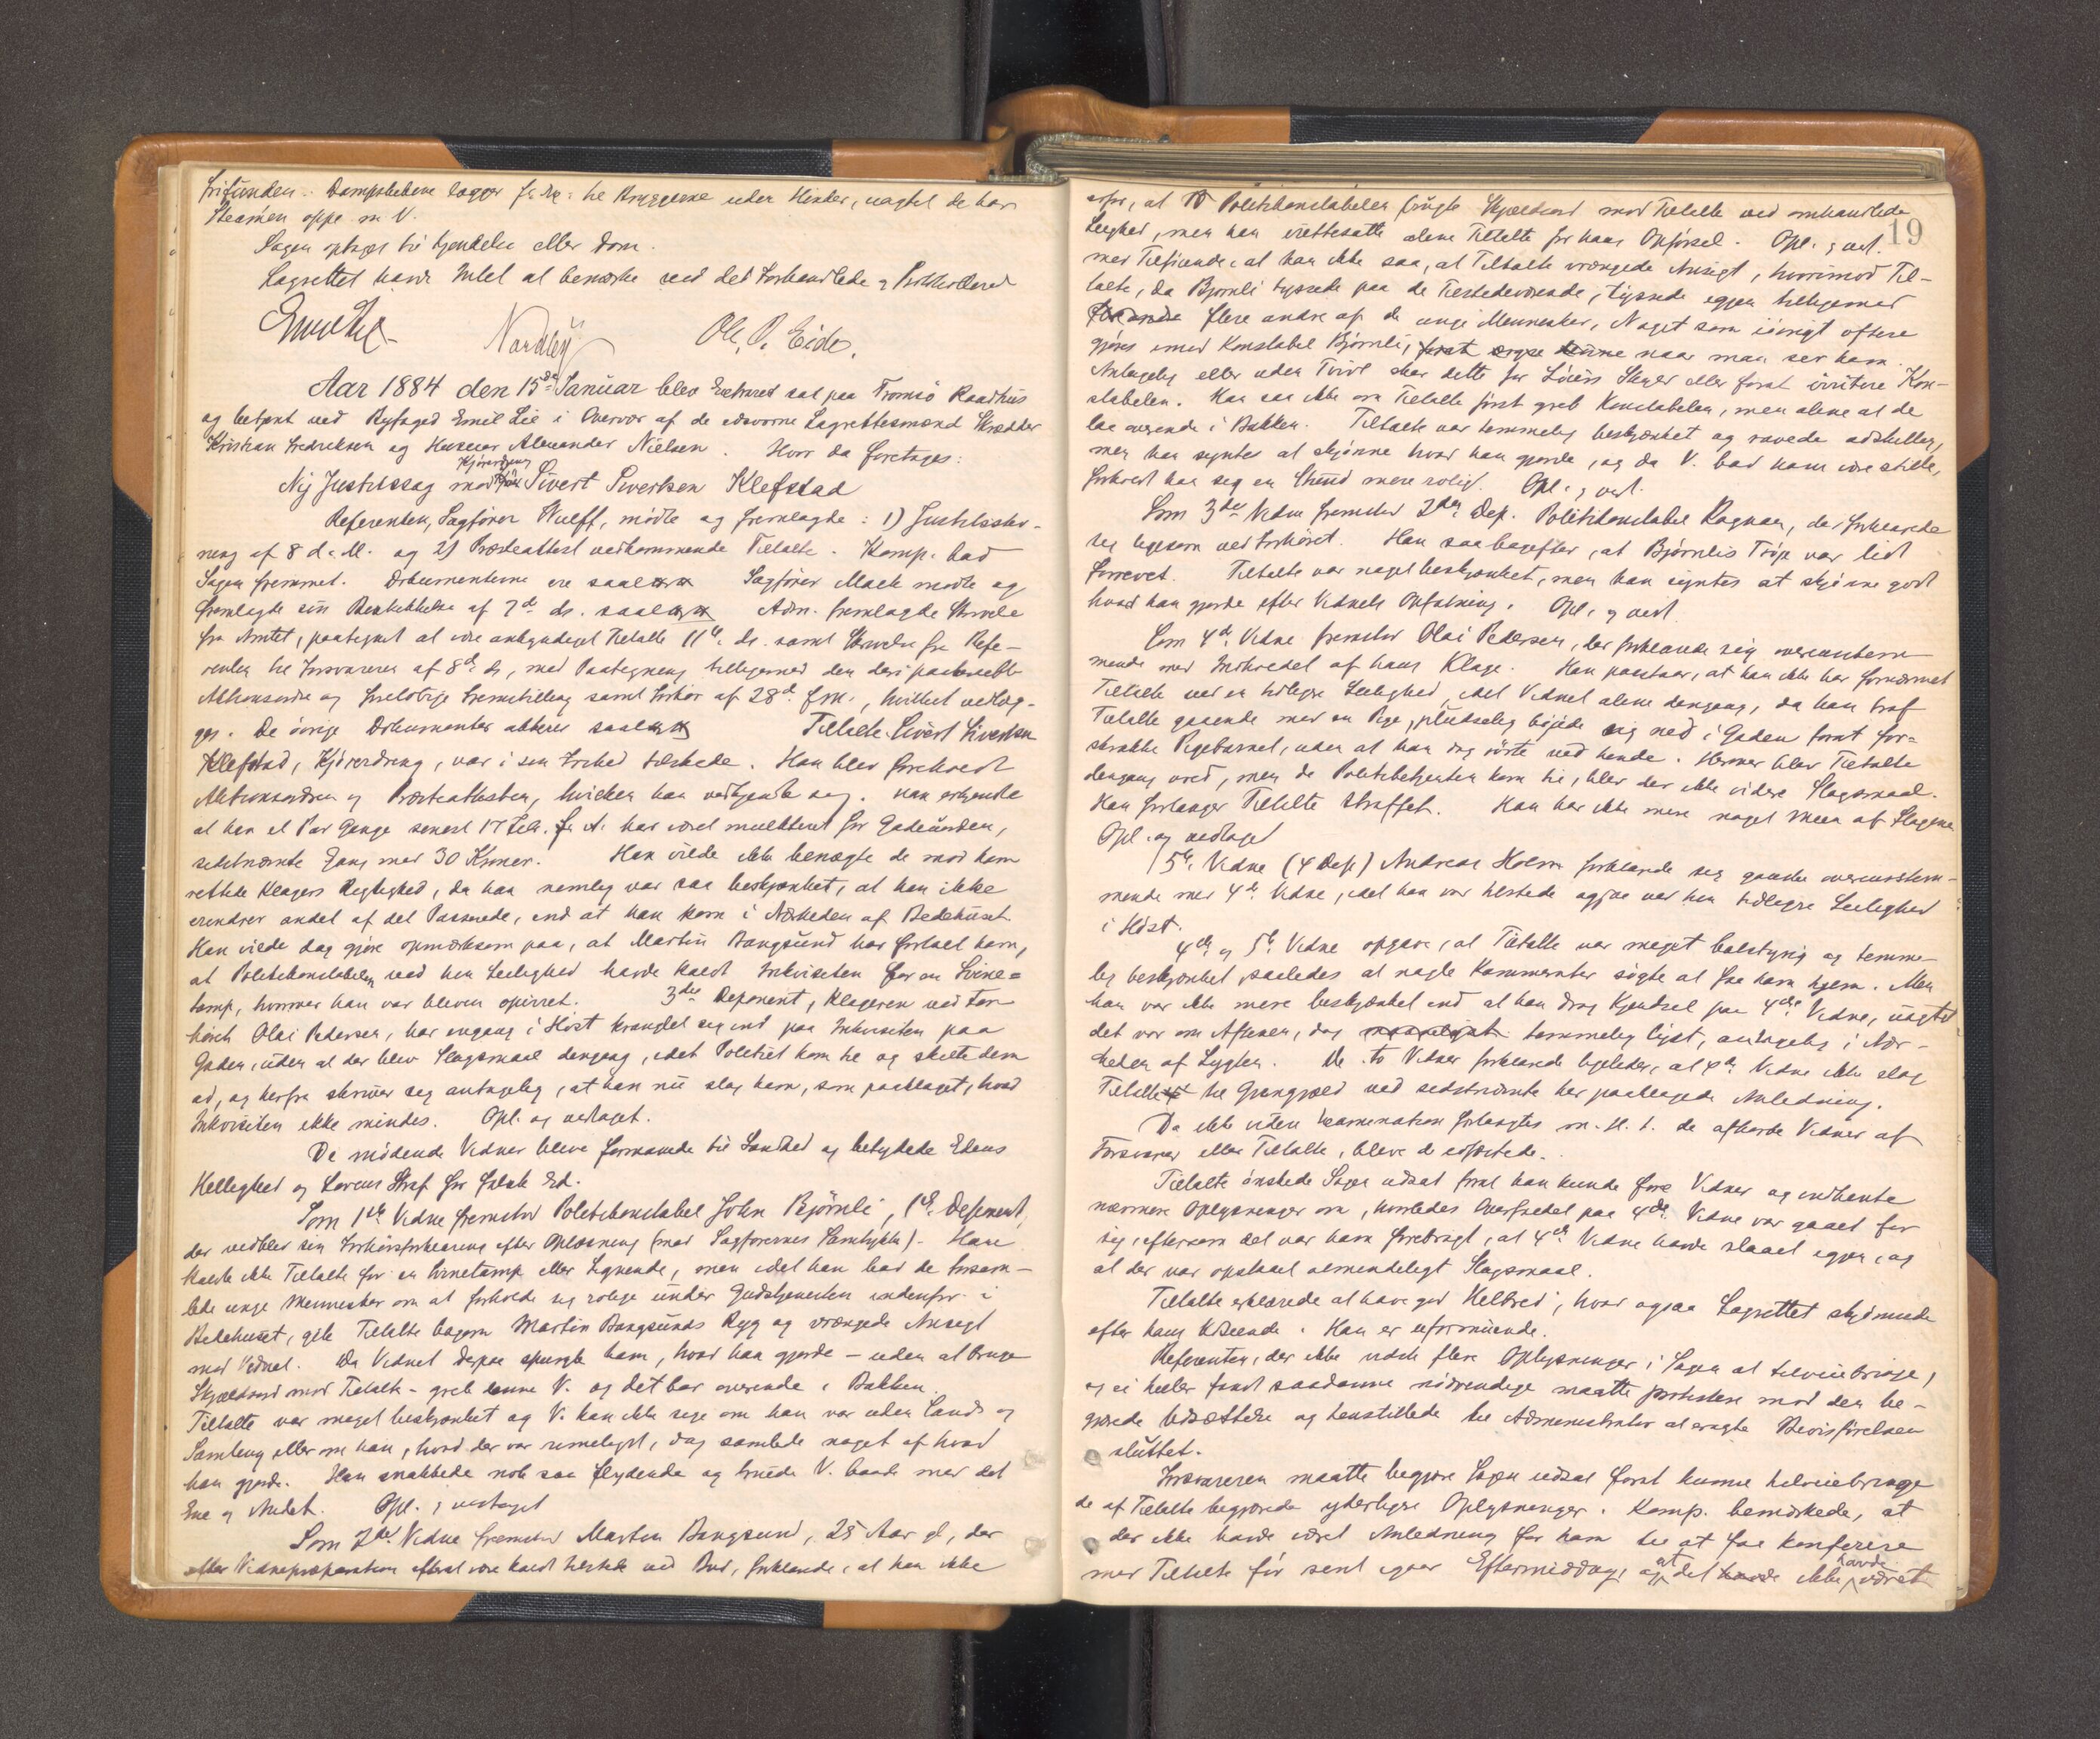 frifunden. Dampskibene lægger til Bryggerne uden Hinder, uagtet de har
Steamen oppe m V.
Sagen optages til Kjendelse eller Dom.
Lagrettet havde Intet at bemærke ved det Forhandlede &
Emil Lie Nordby Ole P. Eide.
Aar 1884 den 15de Januar blev Extraret sat paa Tromsø Raadhus
og betjent ved Byfoged Emil Lie i Overvær af de edsvorne Lagrettesmænd Skrædder
Kristian Fredriksen og Huseier Alexander Nielsen. Hvor da foretages:
Ny Justitssag mod Kjøredreng Sivert Sivertsen Klefstad
Referenten, Sagfører Wulff, mødte og fremlagde: 1) Justitsstev-
ning af 8 d. M. og 2) Præsteattest vedkommende Tiltalte. Komp. bad
Sagen fremmet. Dokumenterne ere saal. Sagfører Mack mødte og
fremlagde sin Beskikkelse af 7de ds. saal. Adm. fremlagde Skrivelse
fra Amtet, paategnet at være ankyndiget Tiltalte 11te ds. samt Skrivelse fra Refe-
renten til Forsvareren af 8de ds, med Paategning tilligemed den deri paaberaabte
Aktionsordre og foreløbige Fremstilling samt Forhør af 28de f.M., hvilket vedlæg-
ges. De øvrige Dokumenter akteres saal. Tiltalte Sivert Sivertsen
Klefstad, Kjøredreng, var i sin Frihed tilstede. Han blev foreholdt
Aktionsordren og Præsteattesten, hvilken han vedkjendte sig. Han erkjendte
at han et Par Gange senest 17 Febr. f. A. har været mulkteret for Gadeuorden,
sidstnævnte Gang med 30 Kroner. Han vilde ikke benægte de mod ham
rettede Klagers Rigtighed, da han nemlig var saa beskjænket, at han ikke
erindrer andet af det Passerede, end at han kom i Nærheden af Bedehuset.
Han vilde dog gjøre opmærksom paa, at Martin Bangsund har fortalt ham,
at Politikonstabelen ved hin Leilighed havde kaldt Inkvisiten for en Svine-
tamp, hvorover han var bleven opirret. 3die Deponent, Klageren ved For-
høret Olai Pedersen, har engang i Høst kranglet sig ind paa Inkvisiten paa
Gaden, uden at der blev Slagsmaal dengang, idet Politiet kom til og skilte dem
ad, og herfra skriver sig antagelig, at han nu slog ham, som paaklaget, hvad
Inkvisiten ikke mindes. Opl. og vedtaget.
De mødende Vidner bleve formanede til Sandhed og betydede Edens
Hellighed og Lovens Straf for falsk Ed.
Som 1ste Vidne fremstod Politikonstabel John Bjørnli, 1ste Deponent,
der vedblev sin Forhørsforklaring efter Oplæsning (med Sagførernes Samtykke). Han
kaldte ikke Tiltalte for en Svinetamp eller Lignende, men idet han bad de forsam-
lede unge Mennesker om at forholde sig rolige under Gudstjenesten indenfor i
Bedehuset, gik Tiltalte bagom Martin Bangsunds Ryg og vrængede Ansigt
mod Vidnet. Da Vidnet derpaa spurgte ham, hvad han gjorde – uden at bruge
Skjældsord mod Tiltalte – greb denne V. og det bar overende i Bakken.
Tiltalte var meget beskjænket og V. kan ikke sige om han var uden Sands og
Samling eller om han, hvad der var rimeligst, dog samlede noget af hvad
han gjorde. Han snakkede nok saa flydende og truede V. baade med det
Ene og Andet. Opl. & vedtaget
Som 2det Vidne fremstod Martin Bangsund, 25 Aar gl, der
efter Vidnepræparation efterat være kaldt tilstede ved Bud, forklarede, at han ikke
19
at Politikonstabelen brugte Skjældsord mod Tiltalte ved omhandlede
Leilighed, men han irettesatte alene Tiltalte for hans Opførsel. Opl. & vedt.
med Tilføiende, at han ikke saa, at Tiltalte vrængede Ansigt, hvorimod Til-
talte, da Bjørnli hyssede paa de Tilstedeværende, hyssede igjen tilligemed
flere andre af de unge Mennesker, Noget som iøvrigt oftere
gjøres imod Konstabel Bjørnli, naar man ser ham.
Antagelig eller uden Tvivl sker dette for Løiers Skyld eller forat irritere Kon-
stabelen. Han saa ikke om Tiltalte først greb Konstabelen, men alene at de
laa overende i Bakken. Tiltalte var temmelig beskjænket og ravede adskillig,
men han syntes at skjønne hvad han gjorde, og da V. bad ham være stille,
forholdt han sig en Stund mere rolig. Opl. & vedt.
Som 3die Vidne fremstod 2den Dep. Politikonstabel Ragnar, der forklarede
sig ligesom ved Forhøret. Han saa bagefter, at Bjørnlis Trøie var lidt
forrevet. Tiltalte var noget beskjænket, men han syntes at skjønne godt
hvad han gjorde efter Vidnets Opfatning. Opl. & vedt.
Som 4de Vidne fremstod Olai Pedersen, der forklarede sig overensstem-
mende med Indholdet af hans Klage. Han paastaar, at han ikke har fornærmet
Tiltalte ved en tidligere Leilighed, idet Vidnet alene dengang, da han traf
Tiltalte gaaende med en Pige, pludselig bøiede sig ned i Gaden forat for-
skrække Pigebarnet, uden at han dog rørte ved hende. Herover blev Tiltalte
dengang vred, men da Politibetjenten kom til, blev der ikke videre Slagsmaal.
Han forlanger Tiltalte straffet. Han har ikke mere noget Meen af Slagene.
Opl. og vedtaget
5te Vidne (4 Dep) Andreas Holm forklarede sig ganske overensstem-
mende med 4de Vidne, idet han var tilstede ogsaa ved hin tidligere Leilighed
i Høst.
4de og 5te Vidne opgave, at Tiltalte var meget balstyrig og temme-
lig beskjænket, saaledes at nogle Kammerater søgte at faa ham hjem. Men
han var ikke mere beskjænket end at han drog Kjendsel paa 4de Vidne, uagtet
det var om Aftenen, dog temmelig lyst, antagelig i Nær-
heden af Lygten. De to Vidner forklarede ligeledes, at 4de Vidne ikke slog
Tiltalte til Gjengjæld ved sidstnævnte her paaklagede Anledning.
Da ikke videre Examination forlangtes m. H. t. de afhørte Vidner af
Forsvarer eller Tiltalte, bleve de edfæstede.
Tiltalte ønskede Sagen udsat forat han kunde føre Vidner og indhente
nærmere Oplysninger om, hvorledes Overfaldet paa 4de Vidne var gaaet for
sig, eftersom det var ham forebragt, at 4de Vidne havde slaaet igjen, og
at der var opstaaet almindeligt Slagsmaal.
Tiltalte erklærede at have god Helbred, hvad ogsaa Lagrettet skjønnede
efter hans Udseende. Han er uformuende.
Referenten, der ikke vidste flere Oplysninger i Sagen at tilveiebringe,
og ei heller fandt saadanne nødvendige maatte protestere mod den be-
gjærede Udsættelse og henstillede til Administrator at eragte Bevisførelsen
sluttet.
Forsvareren maatte begjære Sagen udsat forat kunne tilveiebringe
de af Tiltalte begjærede yderligere Oplysninger. Komp. bemærkede, at
der ikke havde været Anledning for ham til at faa konferere
med Tiltalte før sent igaar Eftermiddag, og at det ikke havde været